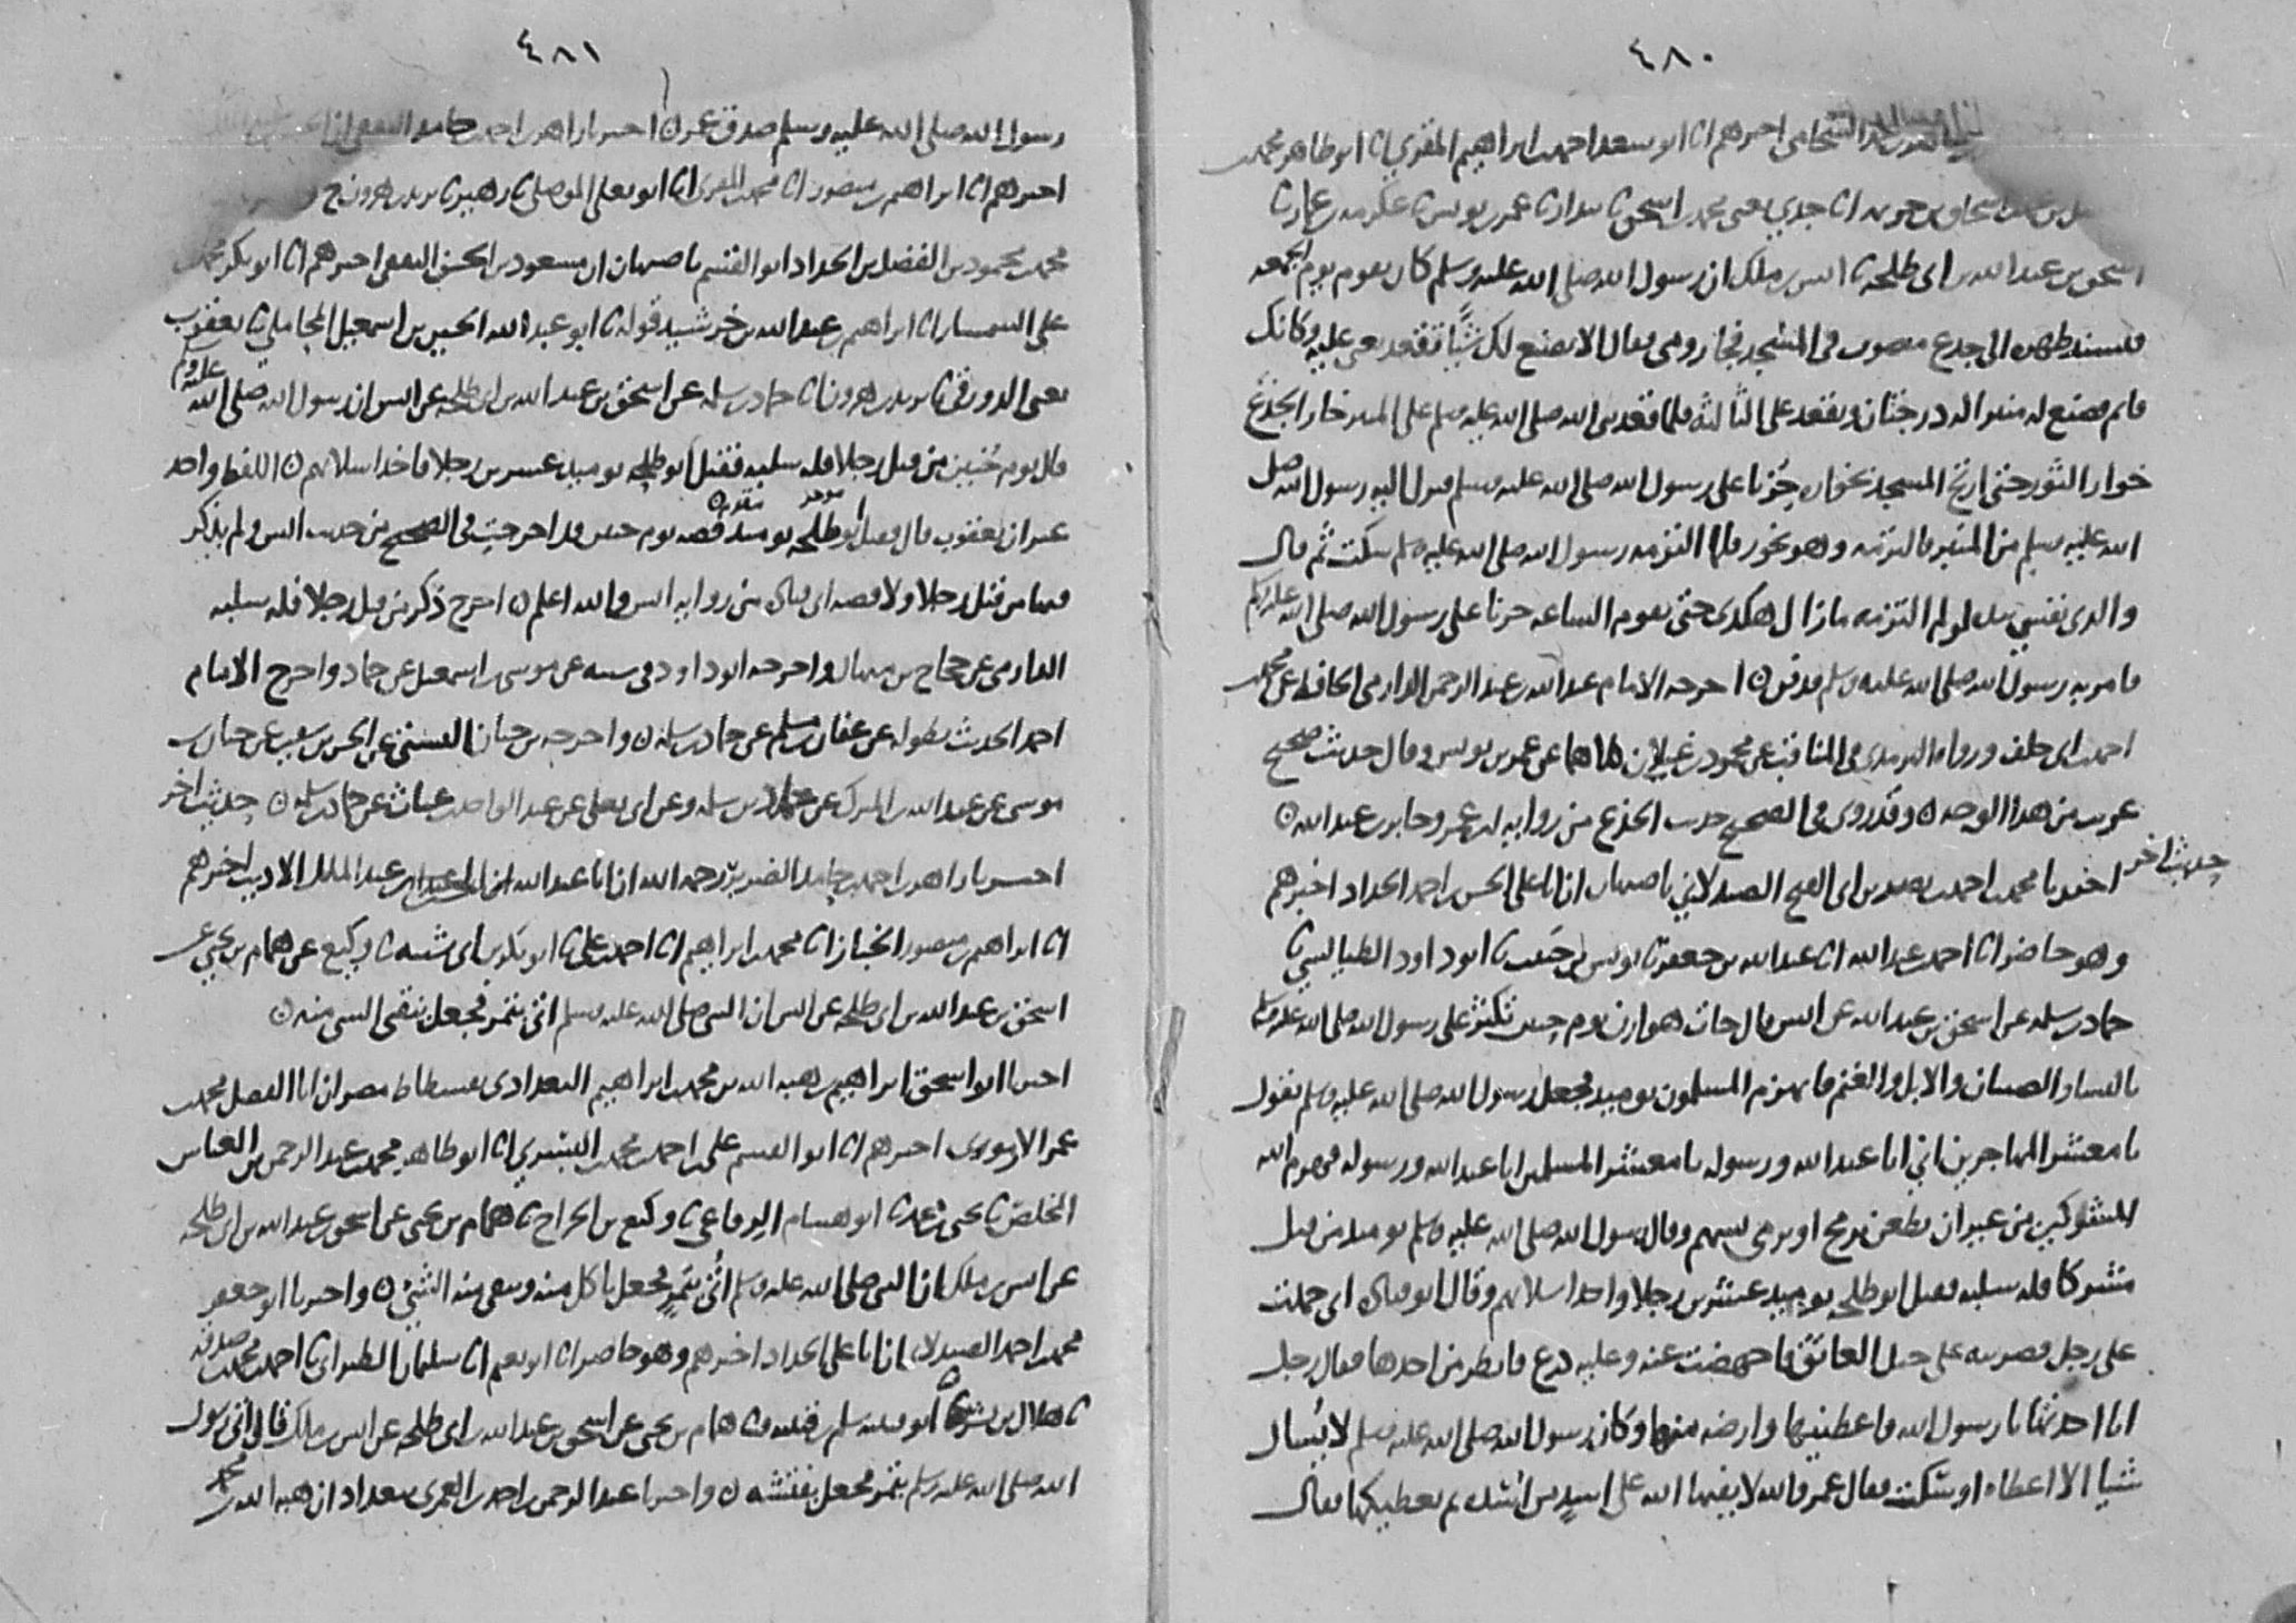 ٤٨٠
الشحامي اخبرهم انا ابو سعد احمد بن ابراهيم المقري انا ابو طاهر محمد بن
اسحاق بن خزيمه انا جدي يعني محمد بن اسحق نا بندار نا عمر بن يونس نا عكرمه بن عمار نا
اسحق بن عبد الله بن ابي طلحه نا انس بن ملك ان رسول الله صلى الله عليه وسلم كان يقوم يوم الجمعه
فيسند ظهره الى جذع منصوب في المسجد فجا رومي فقال الا نصنع لك شيا تقعد عليه وكانك
قايم فصنع له منبرا له درجتان ويقعد على الثالثه فلما قعد نبي الله صلى الله عليه وسلم على المنبر خار الجذع
خوار الثور حتى ارتج المسجد بخواره حزنا على رسول الله صلى الله عليه وسلم فنزل اليه رسول الله صلى
الله عليه وسلم من المنبر فالتزمه وهو يخور فلما التزمه رسول الله صلى الله عليه وسلم سكت ثم قال
والذي نفسي بيده لو لم التزمه ما زال هكذى حتى تقوم الساعه حزنا على رسول الله صلى الله عليه وسلم
فامر به رسول الله صلى الله عليه وسلم فدفن ۞ اخرجه الامام عبد الله بن عبد الرحمن الدارمي الحافظ عن محمد بن
احمد بن ابي خلف ورواه الترمذي في المناقب عن محمود بن غيلان كلاهما عن عمر بن يونس وقال حديث صحيح
غريب من هذا الوجه ۞ وقد روي في الصحيح حديث الجذع من روايه ابن عمر وجابر بن عبد الله ۞
حديث اخر
اخبرنا محمد بن احمد بن نصر بن ابي الفتح الصيدلاني باصبهان ان ابا علي الحسن بن احمد الحداد اخبرهم
وهو حاضر انا احمد بن عبد الله انا عبد الله بن جعفر نا يونس بن حبيب نا ابو داود الطيالسي نا
حماد بن سلمه عن اسحق بن عبد الله عن انس قال جات هوازن يوم حنين تكثر على رسول الله صلى الله عليه وسلم
بالنسا والصبيان والابل والغنم فانهزم المسلمون يوميذ فجعل رسول الله صلى الله عليه وسلم يقول
يا معشر المهاجرين اني انا عبد الله ورسوله يا معشر المسلمين انا عبد الله ورسوله فهزم الله
المشركين من غير ان يطعن برمح او يرمي بسهم وقال رسول الله صلى الله عليه وسلم يوميذ من قتل
مشركا فله سلبه فقتل ابو طلحه يوميذ عشرين رجلا واخذ اسلابهم وقال ابو قتاده اني حملت
على رجل فضربته على حبل العاتق فاجهضت عنه وعليه درع فانظر من اخذها فقال رجل
انا اخذتها يا رسول الله فاعطنيها وارضه منها وكان رسول الله صلى الله عليه وسلم لا يسال
شيا الا اعطاه او سكت فقال عمر والله لا يفيها الله على اسد من اسده ثم يعطيكها فقال
٤٨١
رسول الله صلى الله عليه وسلم صدق عمر ۞ اخبرنا زاهر بن احمد بن حامد الثقفي ان
اخبرهم انا ابراهيم بن منصور انا محمد بن المقري انا ابو يعلى الموصلي نا زهير نا يزيد بن هرون ح
محمد بن محمود بن الفضل بن الحداد ابو القسم باصبهان ان مسعود بن الحسن الثقفي اخبرهم انا ابو بكر محمد بن
علي السمسار انا ابراهيم بن عبد الله بن خرشيد قوله نا ابو عبد الله الحسين بن اسمعيل المحاملي نا يعقوب
يعني الدورقي نا يزيد بن هرون نا حماد بن سلمه عن اسحق بن عبد الله بن ابي طلحه عن انس ان رسول الله صلى الله عليه وسلم
قال يوم حنين من قتل رجلا فله سلبه فقتل ابو طلحه يوميذ عشرين رجلا فاخذ اسلابهم ۞ اللفظ واحد
غير ان يعقوب قال فقتل ابو طلحه يوميذ قصه يوم حنين قد اخرجت في الصحيح من حديث انس ولم يذكر
فيها من قتل رجلا ولا قصه ابي قتاده من روايه انس والله اعلم ۞ اخرج ذكر من قتل رجلا فله سلبه
الدارمي عن حجاج بن منهال واخرجه ابو داود في سننه عن موسى بن اسمعيل عن حماد واخرج الامام
احمد الحديث بطوله عن عفان بن مسلم عن حماد بن سلمه ۞ واخرجه بن حبان البستي عن الحسن بن سفين عن حبان بن
موسى عن عبد الله بن المبرك عن حماد بن سلمه وعن ابي يعلى عن عبد الواحد بن غياث عن حماد بن سلمه ۞ حديث اخر
اخبرنا زاهر بن احمد بن حامد الضرير رحمه الله ان ابا عبد الله بن عبد الملك الاديب اخبرهم
انا ابراهيم بن منصور الخباز انا محمد بن ابراهيم انا احمد بن علي نا ابو بكر بن ابي شيبه نا وكيع عن همام بن يحيى عن
اسحق بن عبد الله بن ابي طلحه عن انس ان النبي صلى الله عليه وسلم اتي بتمر فجعل ينقي السي منه ۞
اخبرنا ابو اسحق ابراهيم بن هبه الله بن محمد بن ابراهيم البغدادي بفسطاط مصر ان ابا الفضل محمد بن
عمر الارموي اخبرهم انا ابو القسم علي بن احمد بن محمد البسري انا ابو طاهر محمد بن عبد الرحمن بن العباس
المخلص نا يحيى بن محمد نا ابو هشام الرفاعي نا وكيع بن الجراح نا همام بن يحيى عن اسحق بن عبد الله بن ابي طلحه
عن انس بن ملك ان النبي صلى الله عليه وسلم اتي بتمر فجعل ياكل منه وينقي منه الشي ۞ واخبرنا ابو جعفر
محمد بن احمد الصيدلاني ان ابا علي الحداد اخبرهم وهو حاضر انا ابو نعيم انا سليمان الطبراني نا احمد بن محمد بن صدقه
نا هلال بن بشر نا ابو قتيبه سلم بن قتيبه نا همام بن يحيى عن اسحق بن عبد الله بن ابي طلحه عن انس بن ملك قال اتي رسول
الله صلى الله عليه وسلم بتمر فجعل يفتشه ۞ واخبرنا عبد الرحمن بن احمد بن العمري ببغداد ان هبه الله بن محمد